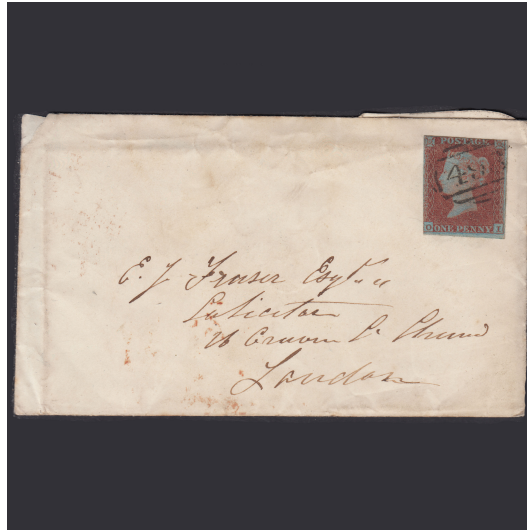 POSTAGE
ONE PENNY
E. J. Fraser Esqr.
Solicitor
Craven St Strand
London